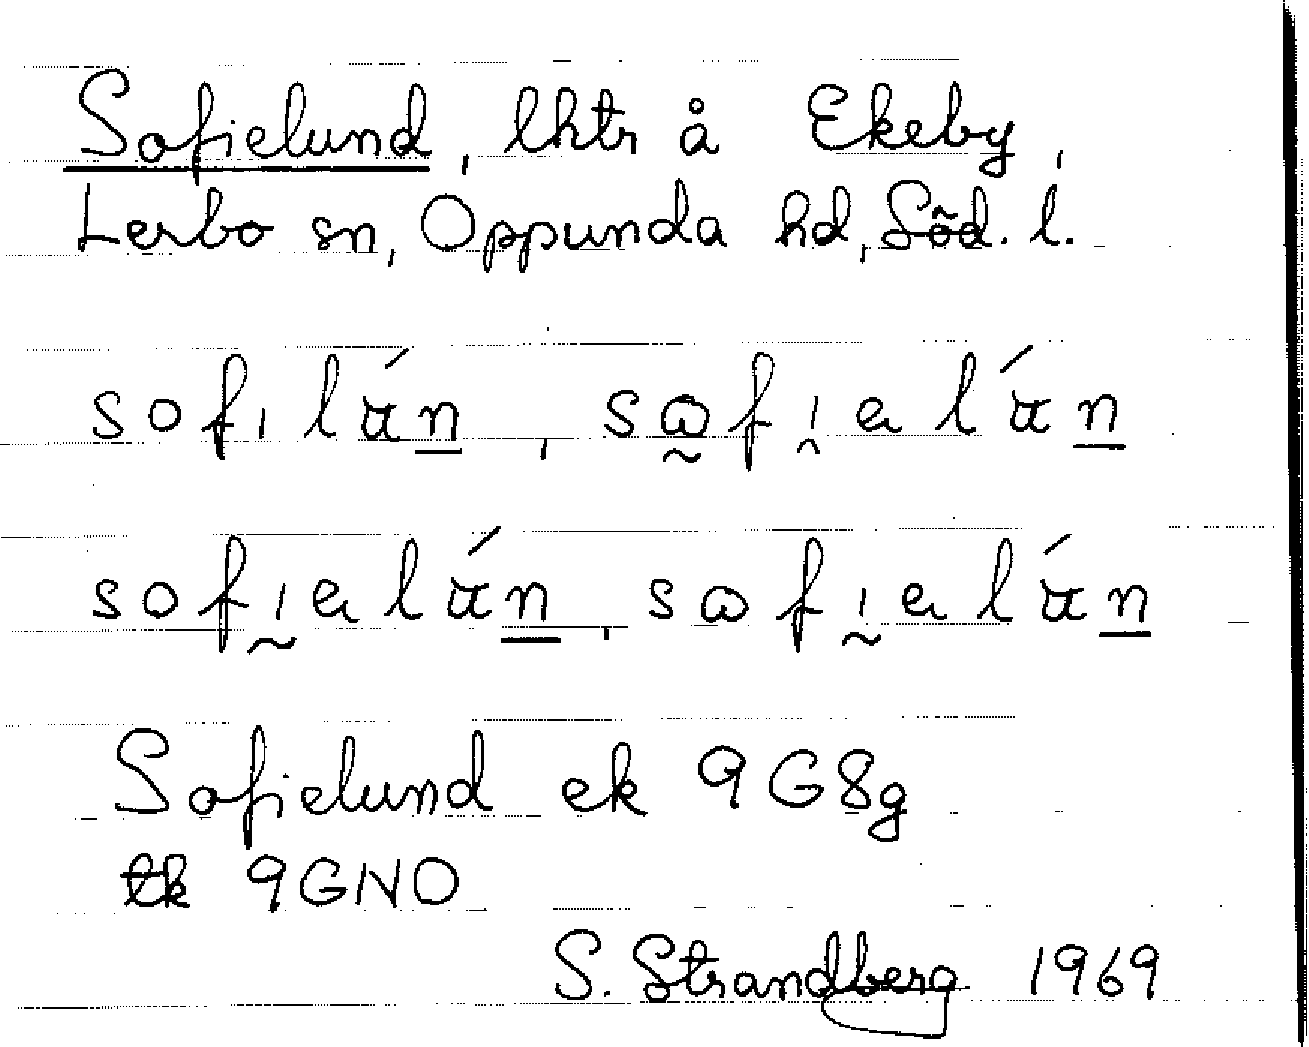 Sofielund, lhtr å Ekeby,
Lerbo sn, Oppunda hd, Söd. l.
sofilán, sωfielán
sofielán, sωfielán
Sofielund ek 9G8g
tk 9GNO
S. Strandberg 1969